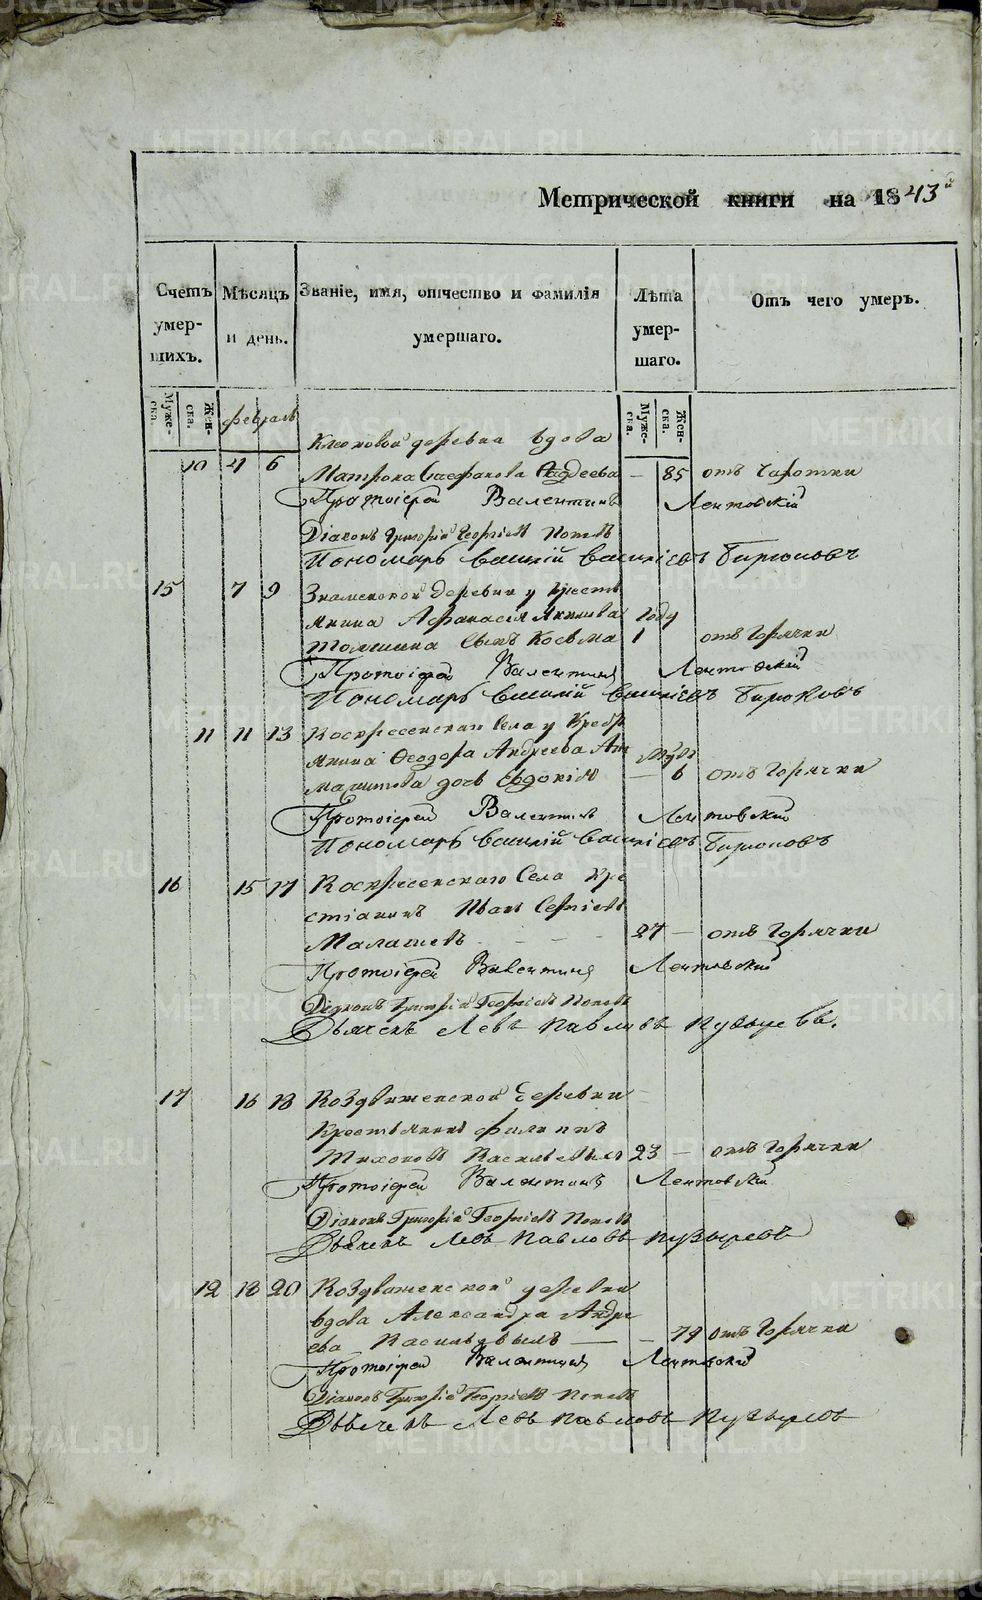 Метрической книги на 1843й
Счетъ умер-шихъ.
Мѣсяцъ и день.
Званіе, имя, отчество и фамилія умершаго.
Лѣта умер-шаго.
Отъ чего умеръ.
Муже-ска. Жен-ска.
февраль
Муже-ска. Жен-ска.
деревна вдова
10 4 6 Матрона — 85 отъ Чахотки
Протоіерей Валентинъ Лентовскій
Діаконъ Григорій Георгіевъ Поповъ
Пономарь Василій Васильевъ Бирюковъ
15 7 9 Знаменской деревни у кресть
янина Афанасія году
сынъ Козьма 1 отъ Горячки
Протоіерей Валентинъ Лентовскій
Пономарь Василій Васильевъ Бирюковъ
11 11 13 Воскресенскаго Села у Кресть
янина Ѳеодора Андреева
дочь Евдокія — 6 отъ Горячки
Протоіерей Валентинъ Лентовскій
Пономарь Василій Васильевъ Бирюковъ
16 15 17 Воскресенскаго Села Кре
стіанинъ Иванъ Сергіевъ
Малашевъ 27 — отъ Горячки
Протоіерей Валентинъ Лентовскій
Діаконъ Григорій Георгіевъ Поповъ
Дьячекъ Левъ Павловъ Пузыревъ.
17 16 18 Воздвиженской деревни
Крестьянинъ филиппъ
Тихоновъ 23 — отъ Горячки
Протоіерей Валентинъ Лентовскій
Діаконъ Григорій Георгіевъ Поповъ
Дьячекъ Левъ Павловъ Пузыревъ
12 18 20 Воздвиженской деревни
вдова Александра Андре
ева — 79 отъ Горячки
Протоіерей Валентинъ Лентовскій
Діаконъ Григорій Георгіевъ Поповъ
Дьячекъ Левъ Павловъ Пузыревъ
METRIKI.GASO-URAL.RU